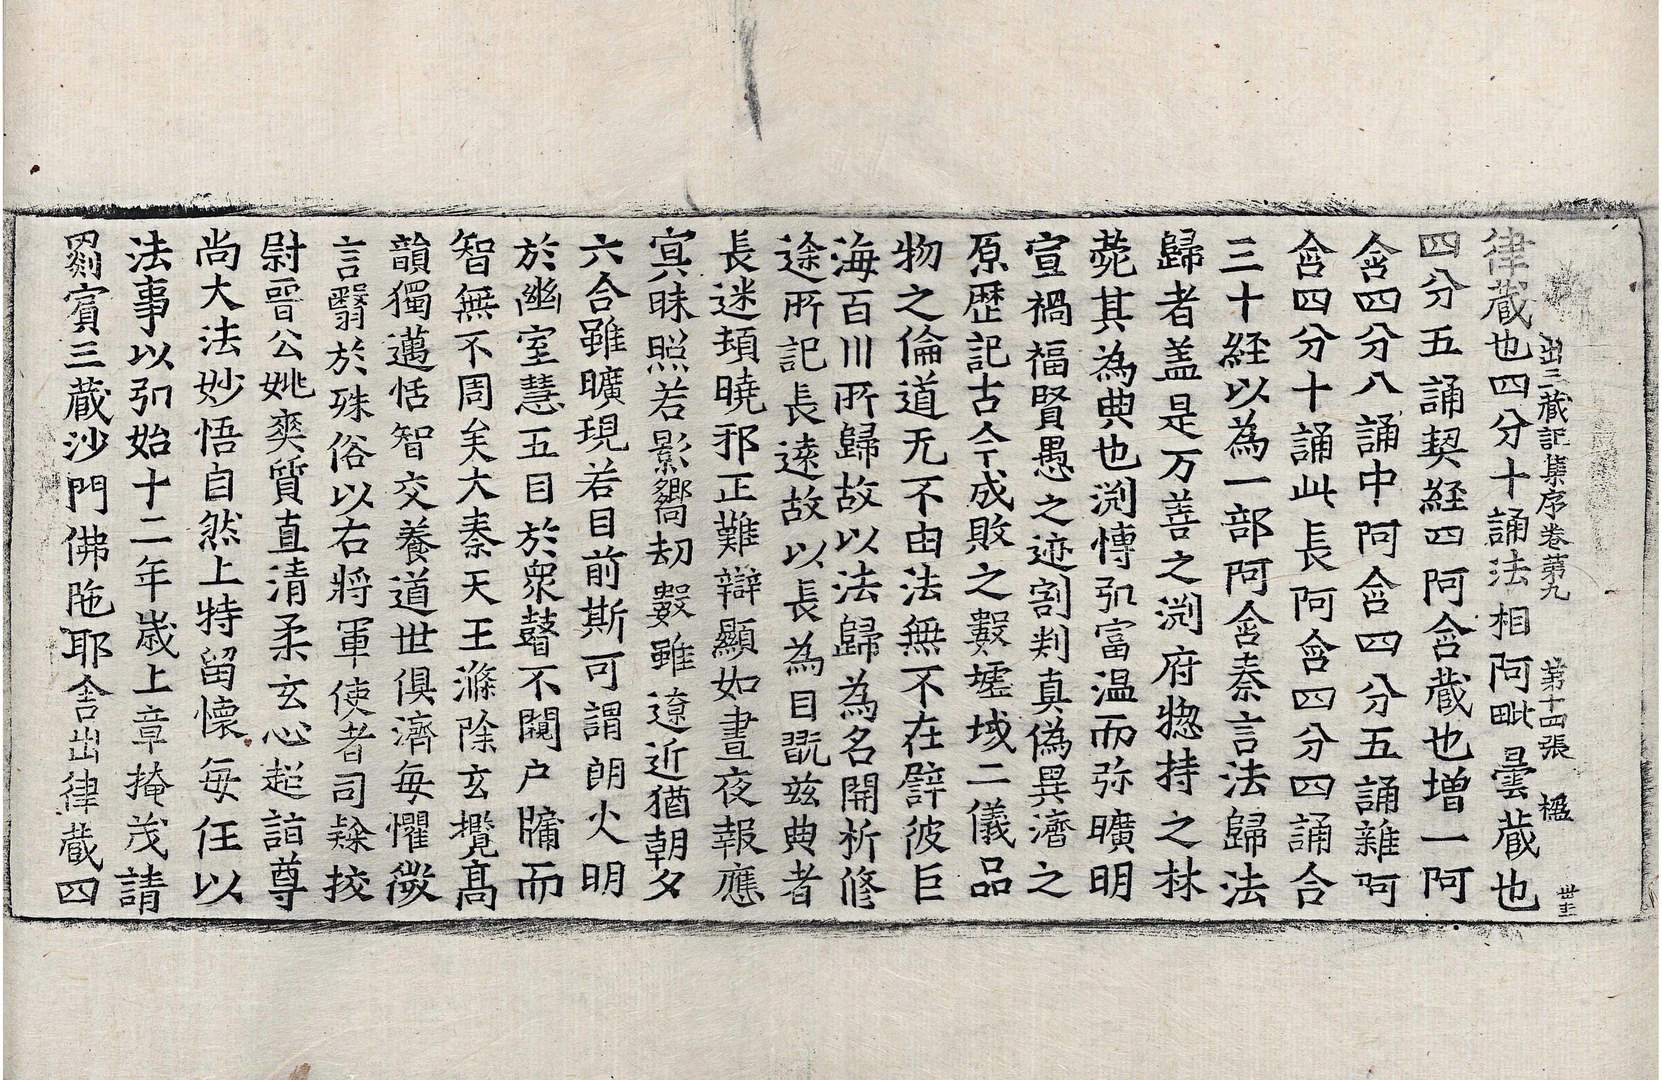 出三藏記集序卷第九　第十四張　楹
律藏也四分十誦法相阿毗曇藏也
四分五誦契経四阿含藏也增一阿
含四分八誦中阿含四分五誦雜阿
含四分十誦此長阿含四分四誦合
三十経以為一部阿含秦言法歸法
歸者盖是万善之渕府惣持之林
苑其為典也渕愽弘富温而弥曠明
宣禍福賢愚之迹割判真偽異濟之
原歷記古今成敗之數墟域二儀品
物之倫道无不由法無不在譬彼巨
海百川所歸故以法歸為名開析修
途所記長遠故以長為目翫兹典者
長迷頓曉邪正難辯顯如晝夜報應
冥昧照若影響劫數雖遼近猶朝夕
六合雖曠現若目前斯可謂朗火明
於幽室慧五目於衆瞽不闚户牖而
智無不周矣大秦天王滌除玄攬髙
韻獨邁恬智交養道世俱濟每懼微
言翳於殊俗以右將軍使者司𨽻挍
尉晋公姚爽質直清柔玄心超詣尊
尚大法妙悟自然上特留懷每任以
法事以弘始十二年歲上章掩茂請
罽賓三藏沙門佛陁耶舍出律藏四